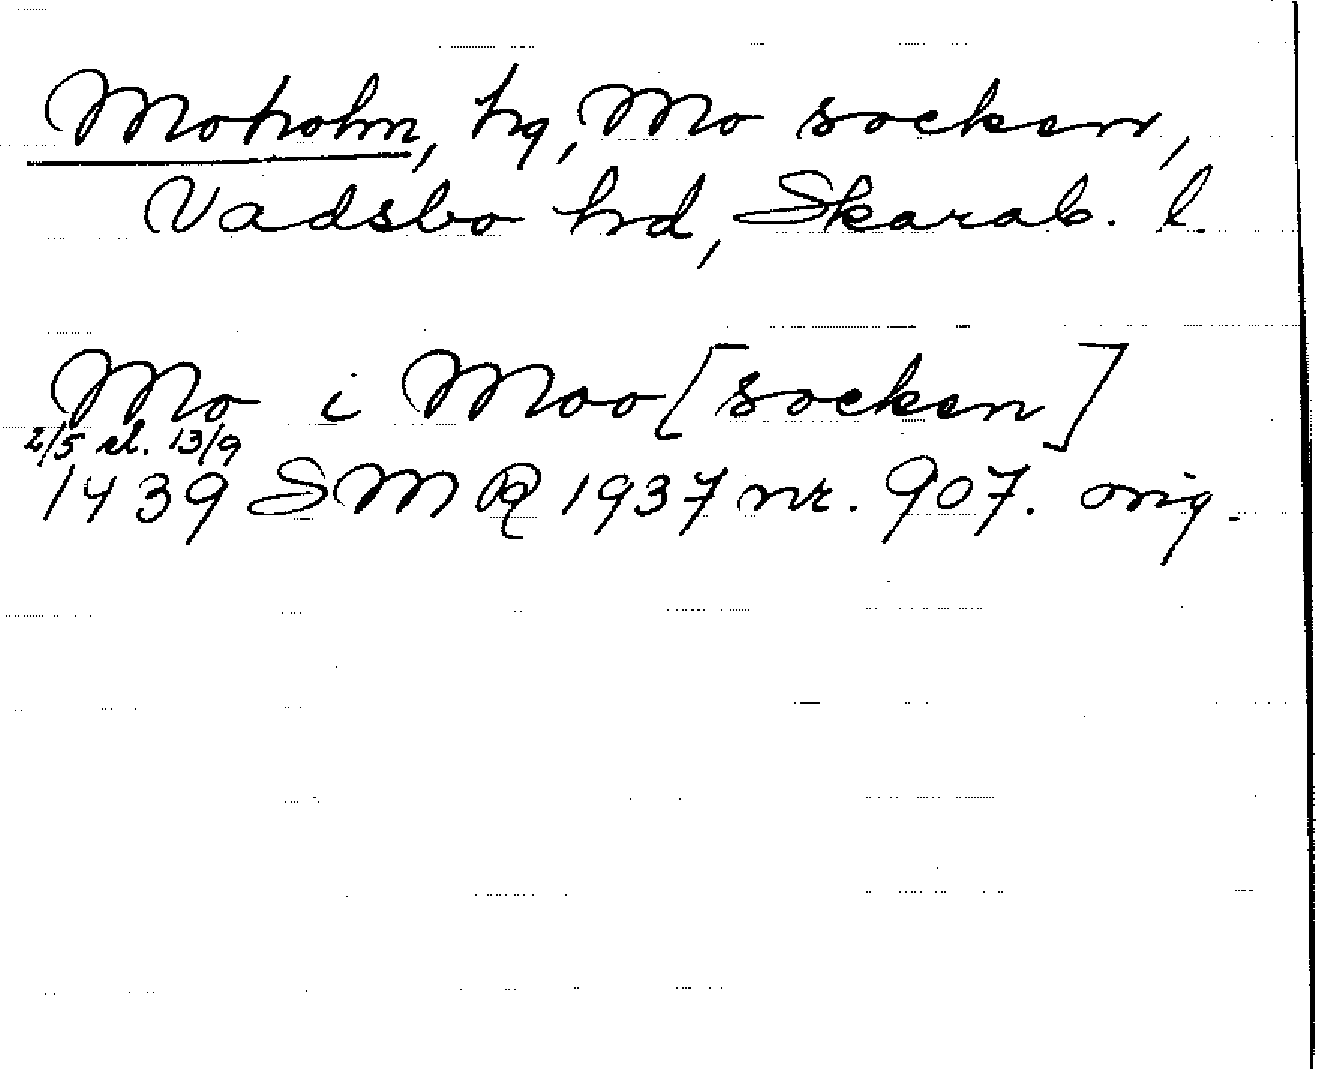 Moholm, hg, Mo socken,
Vadsbo hd, Skarab. l.
Mo i Moo [socken]
2/5 el. 13/9
1439 SMR 1937 nr. 907. orig.